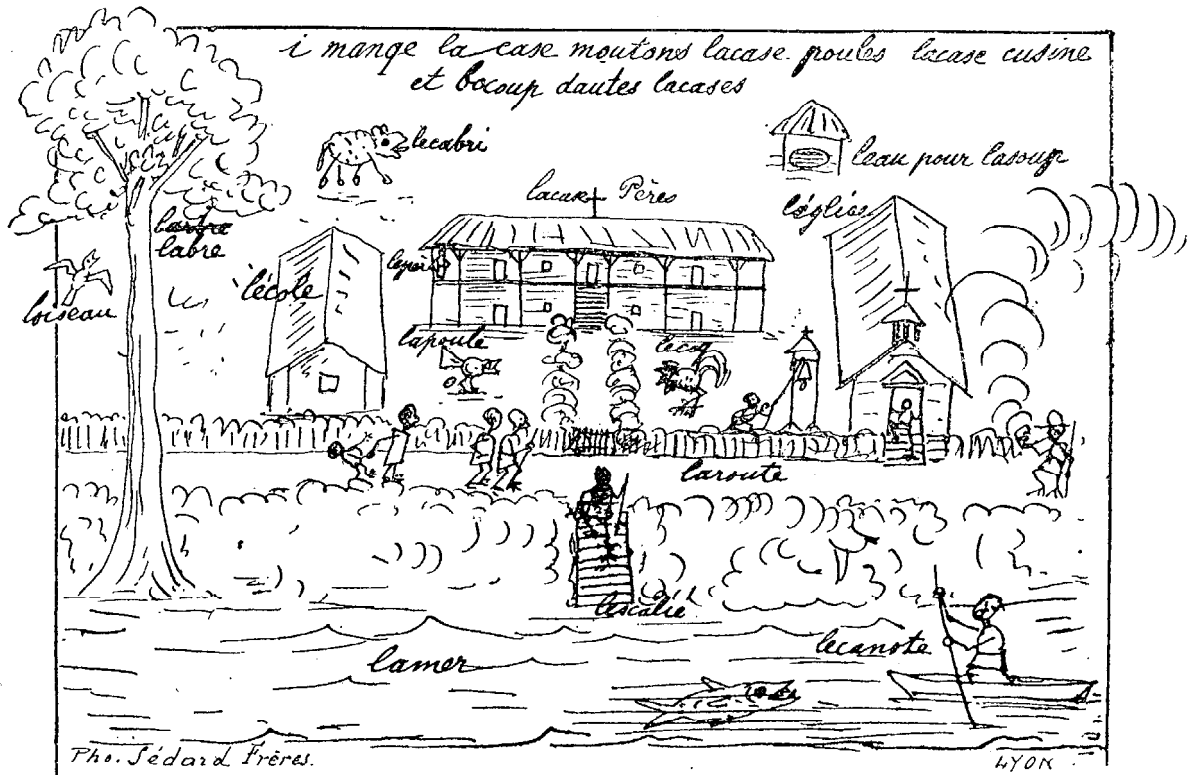 i mange la case moutons lacase poules lacase cusine
et bocoup dautes lacases
lecabri
leau pour lasoup
lacase Pères
léglise
labre
lepèr
lécole
loiseau
lapoule
lecoq
laroute
lescalié
lecanote
lamer
Pho. Sédard Frères.
LYON